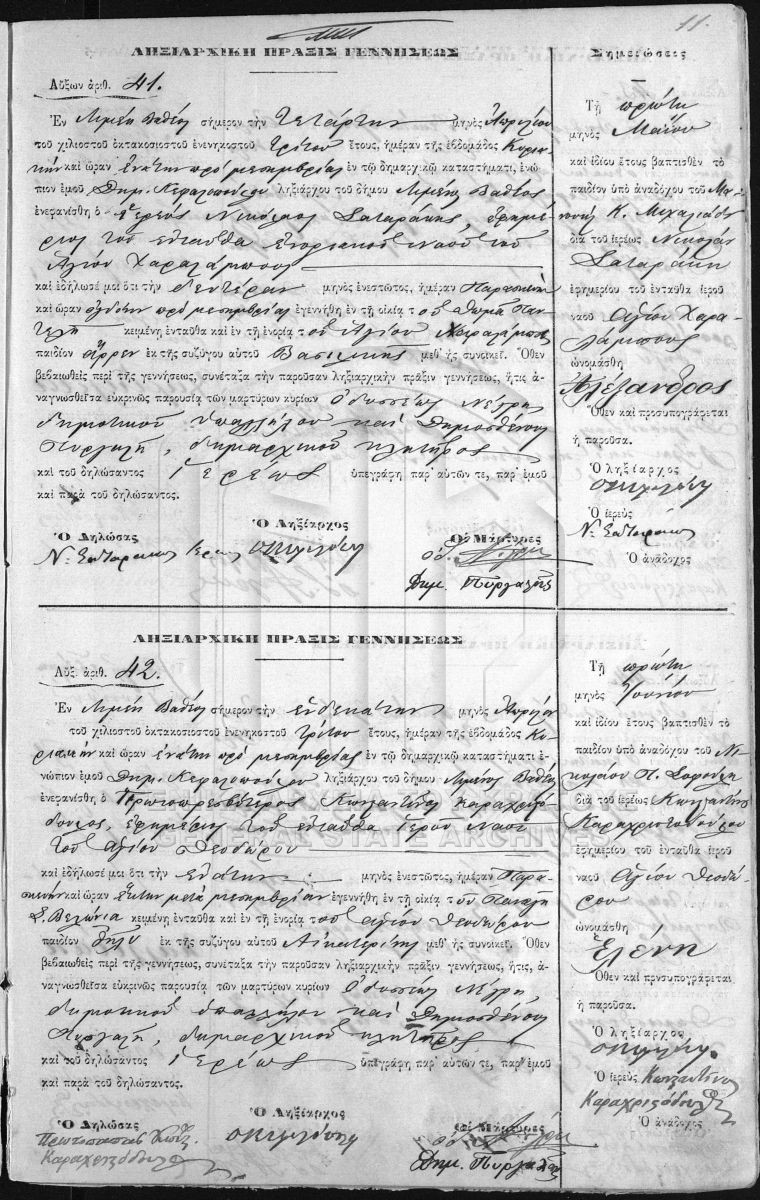 11.
ΛΗΞΙΑΡΧΙΚΗ ΠΡΑΞΙΣ ΓΕΝΝΗΣΕΩΣ
Αὔξων ἀριθ. 41.
Ἐν Λιμένι Βαθέος σήμερον τὴν τετάρτην μηνὸς Ἀπριλίου
τοῦ χιλιοστοῦ ὀκτακοσιοστοῦ ἐνενηκοστοῦ τρίτου ἔτους, ἡμέραν τῆς ἑβδομάδος Κυρια-
κὴν καὶ ὥραν ἐνάτην πρὸ μεσημβρίας ἐν τῷ δημαρχικῷ καταστήματι, ἐνώ-
πιον ἐμοῦ Δημ. Κεφαλοπούλου ληξιάρχου τοῦ δήμου Λιμένος Βαθέος
ἐνεφανίσθη ὁ ἱερεὺς Νικόλαος Σαταράκης, ἐφημέ-
ριος τοῦ ἐνταῦθα ἐνοριακοῦ ναοῦ τοῦ
Ἁγίου Χαραλάμπους
καὶ ἐδήλωσέ μοι ὅτι τὴν δευτέραν μηνὸς ἐνεστῶτος, ἡμέραν Παρασκευὴν
καὶ ὥραν ὀγδόην πρὸ μεσημβρίας ἐγεννήθη ἐν τῇ οἰκίᾳ τοῦ Θωμᾶ Παν-
τελῆ κειμένῃ ἐνταῦθα καὶ ἐν τῇ ἐνορίᾳ τοῦ Ἁγίου Χαραλάμπους
παιδίον ἄρρεν ἐκ τῆς συζύγου αὐτοῦ Βασιλικῆς μεθ' ἧς συνοικεῖ. Ὅθεν
βεβαιωθεὶς περὶ τῆς γεννήσεως, συνέταξα τὴν παροῦσαν ληξιαρχικὴν πρᾶξιν γεννήσεως, ἥτις ἀ-
ναγνωσθεῖσα εὐκρινῶς παρουσίᾳ τῶν μαρτύρων κυρίων Ὀδυσσέως Νέγρη
δημοτικοῦ ὑπαλλήλου καὶ Δημοσθένους
Πυργαλῆ, δημαρχικοῦ κλητῆρος
καὶ τοῦ δηλώσαντος ἱερέως ὑπεγράφη παρ' αὐτῶν τε, παρ' ἐμοῦ
καὶ παρὰ τοῦ δηλώσαντος.
Ὁ Δηλώσας
Ὁ Ληξίαρχος
Οἱ Μάρτυρες
Ν. Σαταράκης
Δημ. Πυργαλῆς
Σημειώσεις
Τῇ πρώτῃ
μηνὸς Μαΐου
καὶ ἰδίου ἔτους βαπτισθὲν τὸ
παιδίον ὑπὸ ἀναδόχου τοῦ
Κ. Μιχαλιάδη
διὰ τοῦ ἱερέως Νικολάου
Σαταράκη
ἐφημερίου τοῦ ἐνταῦθα ἱεροῦ
ναοῦ Ἁγίου Χαρα-
λάμπους
ὠνομάσθη
Ἀλέξανδρος
Ὅθεν καὶ προσυπογράφεται
ἡ παροῦσα.
Ὁ ληξίαρχος
Ὁ ἱερεὺς
Ν. Σαταράκης
Ὁ ἀνάδοχος
ΛΗΞΙΑΡΧΙΚΗ ΠΡΑΞΙΣ ΓΕΝΝΗΣΕΩΣ
Αὔξ. ἀριθ. 42.
Ἐν Λιμένι Βαθέος σήμερον τὴν ἑνδεκάτην μηνὸς Ἀπριλίου
τοῦ χιλιοστοῦ ὀκτακοσιοστοῦ ἐνενηκοστοῦ τρίτου ἔτους, ἡμέραν τῆς ἑβδομάδος Κυ-
ριακὴν καὶ ὥραν ἐνάτην πρὸ μεσημβρίας ἐν τῷ δημαρχικῷ καταστήματι ἐ-
νώπιον ἐμοῦ Δημ. Κεφαλοπούλου ληξιάρχου τοῦ δήμου Λιμένος Βαθέος
ἐνεφανίσθη ὁ Πρωτοπρεσβύτερος Κωνσταντῖνος Καραχριστο-
δοῦλος, ἐφημέριος τοῦ ἐνταῦθα ἱεροῦ ναοῦ
τοῦ Ἁγίου Θεοδώρου
καὶ ἐδήλωσέ μοι ὅτι τὴν ἐνάτην μηνὸς ἐνεστῶτος, ἡμέραν Παρα-
σκευὴν καὶ ὥραν ἕκτην μετὰ μεσημβρίαν ἐγεννήθη ἐν τῇ οἰκίᾳ τοῦ Παναγῆ
Σ. Βελώνια κειμένῃ ἐνταῦθα καὶ ἐν τῇ ἐνορίᾳ τοῦ Ἁγίου Θεοδώρου
παιδίον θῆλυ ἐκ τῆς συζύγου αὐτοῦ Αἰκατερίνης μεθ' ἧς συνοικεῖ. Ὅθεν
βεβαιωθεὶς περὶ τῆς γεννήσεως, συνέταξα τὴν παροῦσαν ληξιαρχικὴν πρᾶξιν γεννήσεως, ἥτις, ἀ-
ναγνωσθεῖσα εὐκρινῶς παρουσίᾳ τῶν μαρτύρων κυρίων Ὀδυσσέως Νέγρη,
δημοτικοῦ ὑπαλλήλου καὶ Δημοσθένους
Πυργαλῆ, δημαρχικοῦ κλητῆρος
καὶ τοῦ δηλώσαντος ἱερέως ὑπεγράφη παρ' αὐτῶν τε, παρ' ἐμοῦ
καὶ παρὰ τοῦ δηλώσαντος.
Ὁ Δηλώσας
Ὁ Ληξίαρχος
Οἱ Μάρτυρες
Δημ. Πυργαλῆς
Τῇ πρώτῃ
μηνὸς Ἰουνίου
καὶ ἰδίου ἔτους βαπτισθὲν τὸ
παιδίον ὑπὸ ἀναδόχου τοῦ Νι-
κολάου Π. Σοφούλη
διὰ τοῦ ἱερέως Κωνσταντίνου
Καραχριστοδούλου
ἐφημερίου τοῦ ἐνταῦθα ἱεροῦ
ναοῦ Ἁγίου Θεοδώ-
ρου
ὠνομάσθη
Ἑλένη
Ὅθεν καὶ προσυπογράφεται
ἡ παροῦσα.
Ὁ ληξίαρχος
Ὁ ἱερεὺς Κωνσταντῖνος
Ὁ ἀνάδοχος